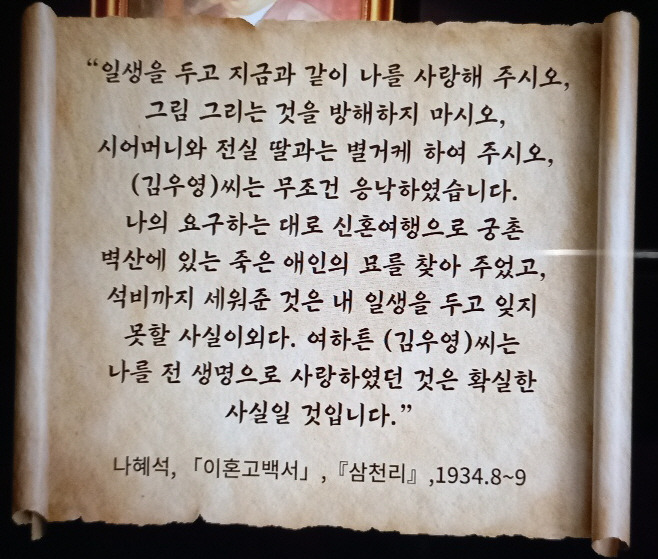 “일생을 두고 지금과 같이 나를 사랑해 주시오,
그림 그리는 것을 방해하지 마시오,
시어머니와 전실 딸과는 별거케 하여 주시오,
(김우영)씨는 무조건 응낙하였습니다.
나의 요구하는 대로 신혼여행으로 궁촌
벽산에 있는 죽은 애인의 묘를 찾아 주었고,
석비까지 세워준 것은 내 일생을 두고 잊지
못할 사실이외다. 여하튼 (김우영)씨는
나를 전 생명으로 사랑하였던 것은 확실한
사실일 것입니다.”
나혜석, 「이혼고백서」, 『삼천리』,1934.8~9